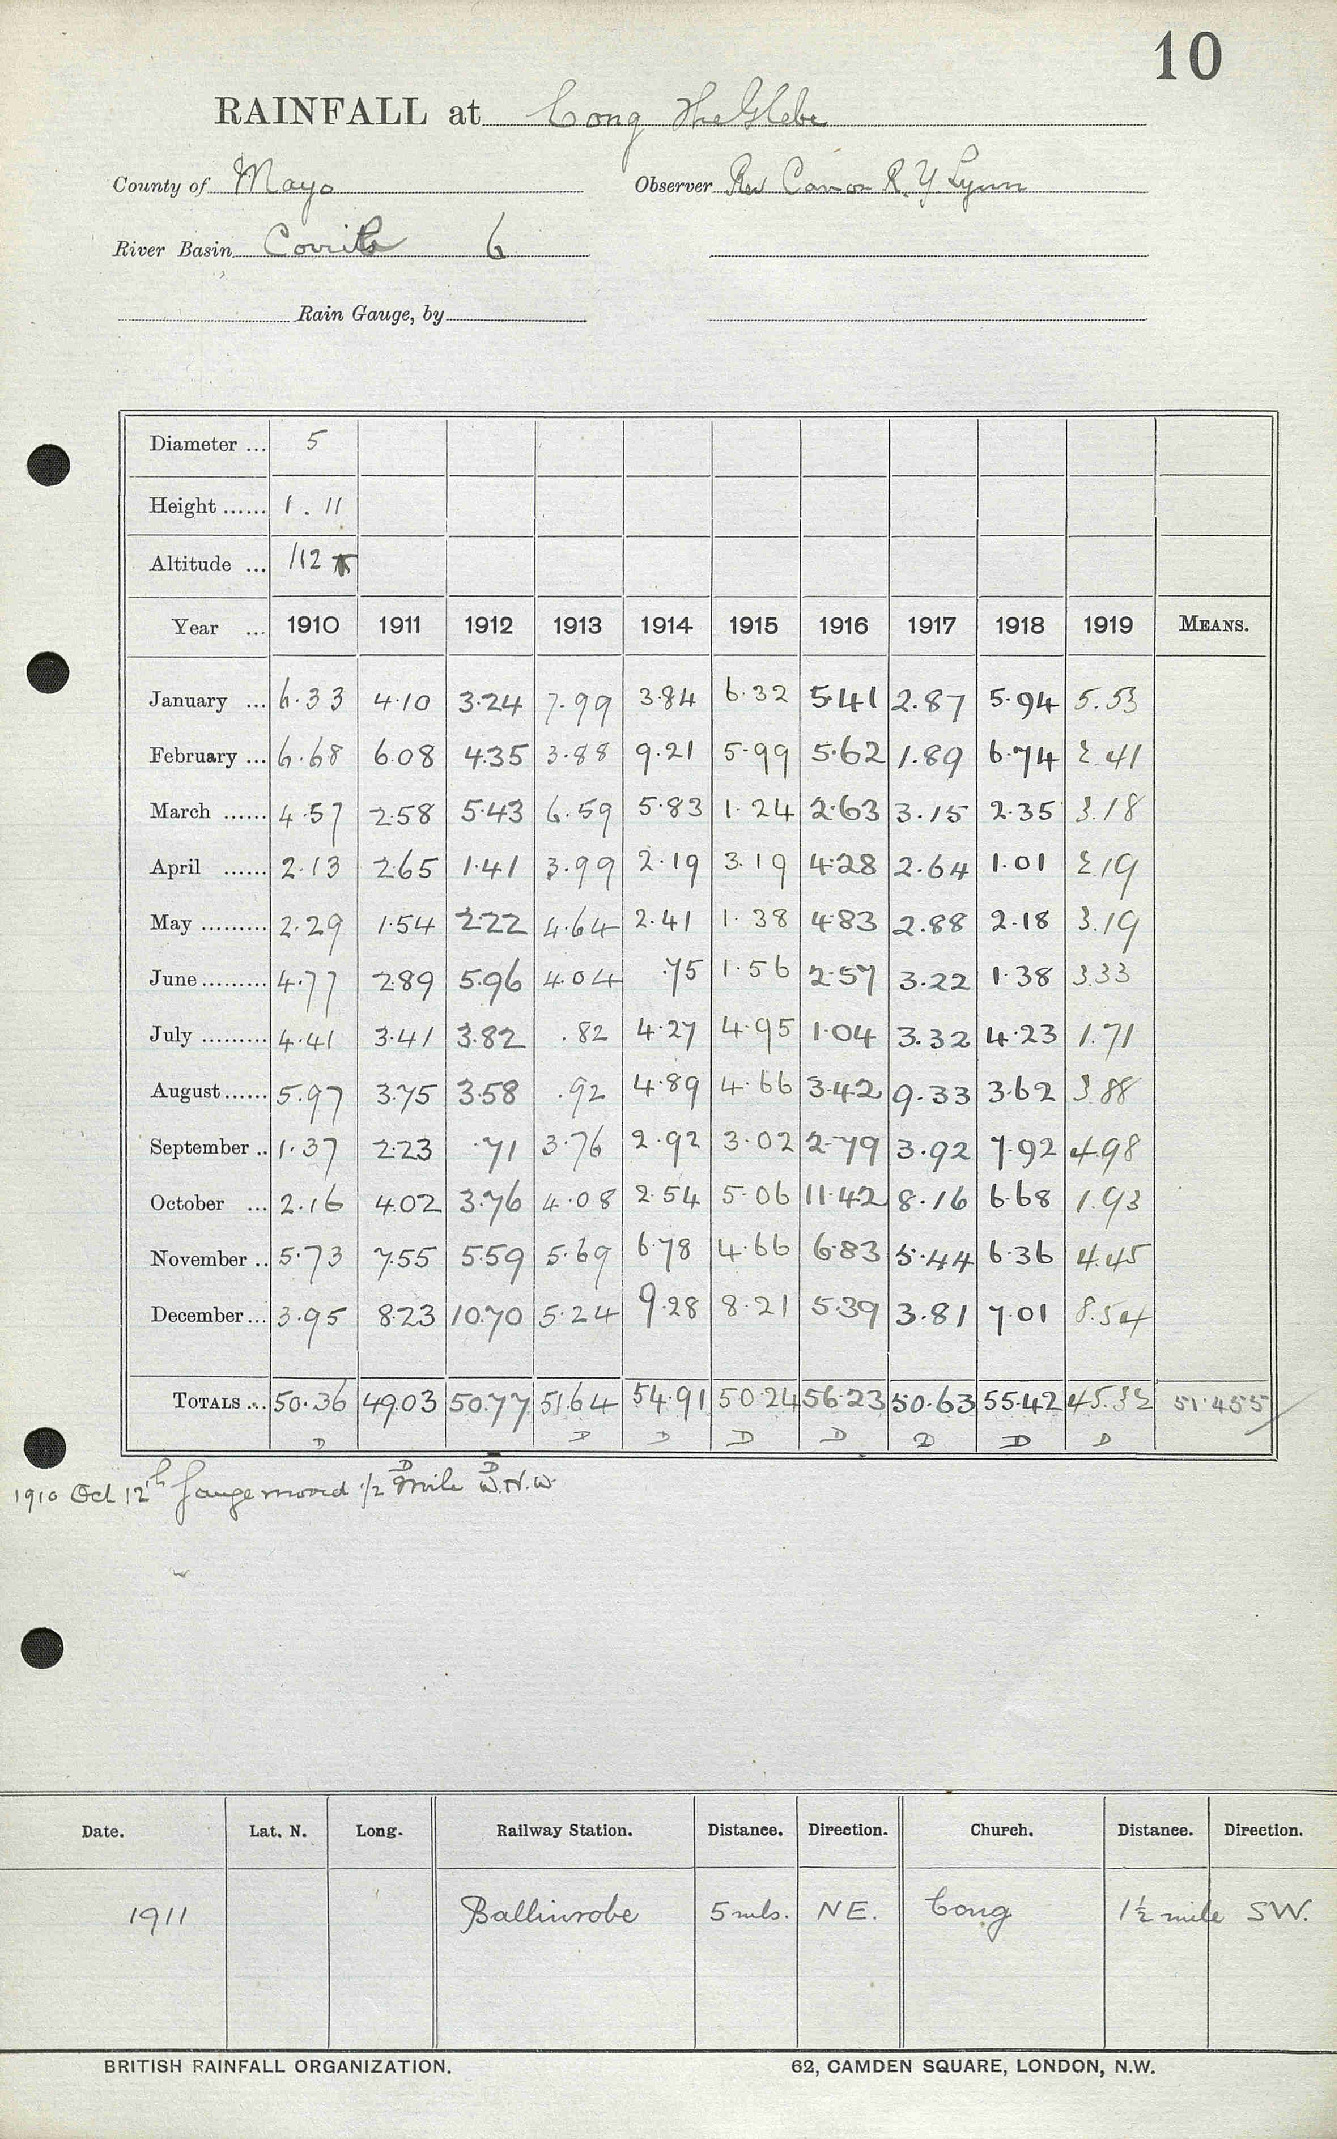 10
RAINFALL at Cong The Glebe
County of Mayo Observer Rev Canon R. Y Lynn
River Basin Corrib 6
Rain Gauge, by
Diameter ... 5
Height ...... 1 . 11
Altitude ... 112
Year ... 1910 1911 1912 1913 1914 1915 1916 1917 1918 1919 MEANS.
January ... 6.33 4.10 3.24 7.99 3.84 6.32 5.41 2.87 5.94 5.53
February ... 6.68 6.08 4.35 3.88 9.21 5.99 5.62 1.89 6.74 2.41
March ...... 4.57 2.58 5.43 6.59 5.83 1.24 2.63 3.15 2.35 3.18
April ...... 2.13 2.65 1.41 3.99 2.19 3.19 4.28 2.64 1.01 2.19
May ......... 2.29 1.54 2.22 4.64 2.41 1.38 4.83 2.88 2.18 3.19
June ......... 4.77 2.89 5.96 4.04 .75 1.56 2.57 3.22 1.38 3.33
July ......... 4.41 3.41 3.82 .82 4.27 4.95 1.04 3.32 4.23 1.71
August ...... 5.97 3.75 3.58 .92 4.89 4.66 3.42 9.33 3.62 3.88
September .. 1.37 2.23 .71 3.76 2.92 3.02 2.79 3.92 7.92 4.98
October ... 2.16 4.02 3.76 4.08 2.54 5.06 11.42 8.16 6.68 1.93
November .. 5.73 7.55 5.59 5.69 6.78 4.66 6.83 5.44 6.36 4.45
December ... 3.95 8.23 10.70 5.24 9.28 8.21 5.39 3.81 7.01 8.54
TOTALS ... 50.36 49.03 50.77 51.64 54.91 50.24 56.23 50.63 55.42 45.32 51.455
D D D D D D D D
D D
1910 Oct 12th Gauge moved 1/2 mile W.N.W
Date. Lat. N. Long. Railway Station. Distance. Direction. Church. Distance. Direction.
1911 Ballinrobe 5 mls. NE. Cong 1½ mile SW.
BRITISH RAINFALL ORGANIZATION. 62, CAMDEN SQUARE, LONDON, N.W.